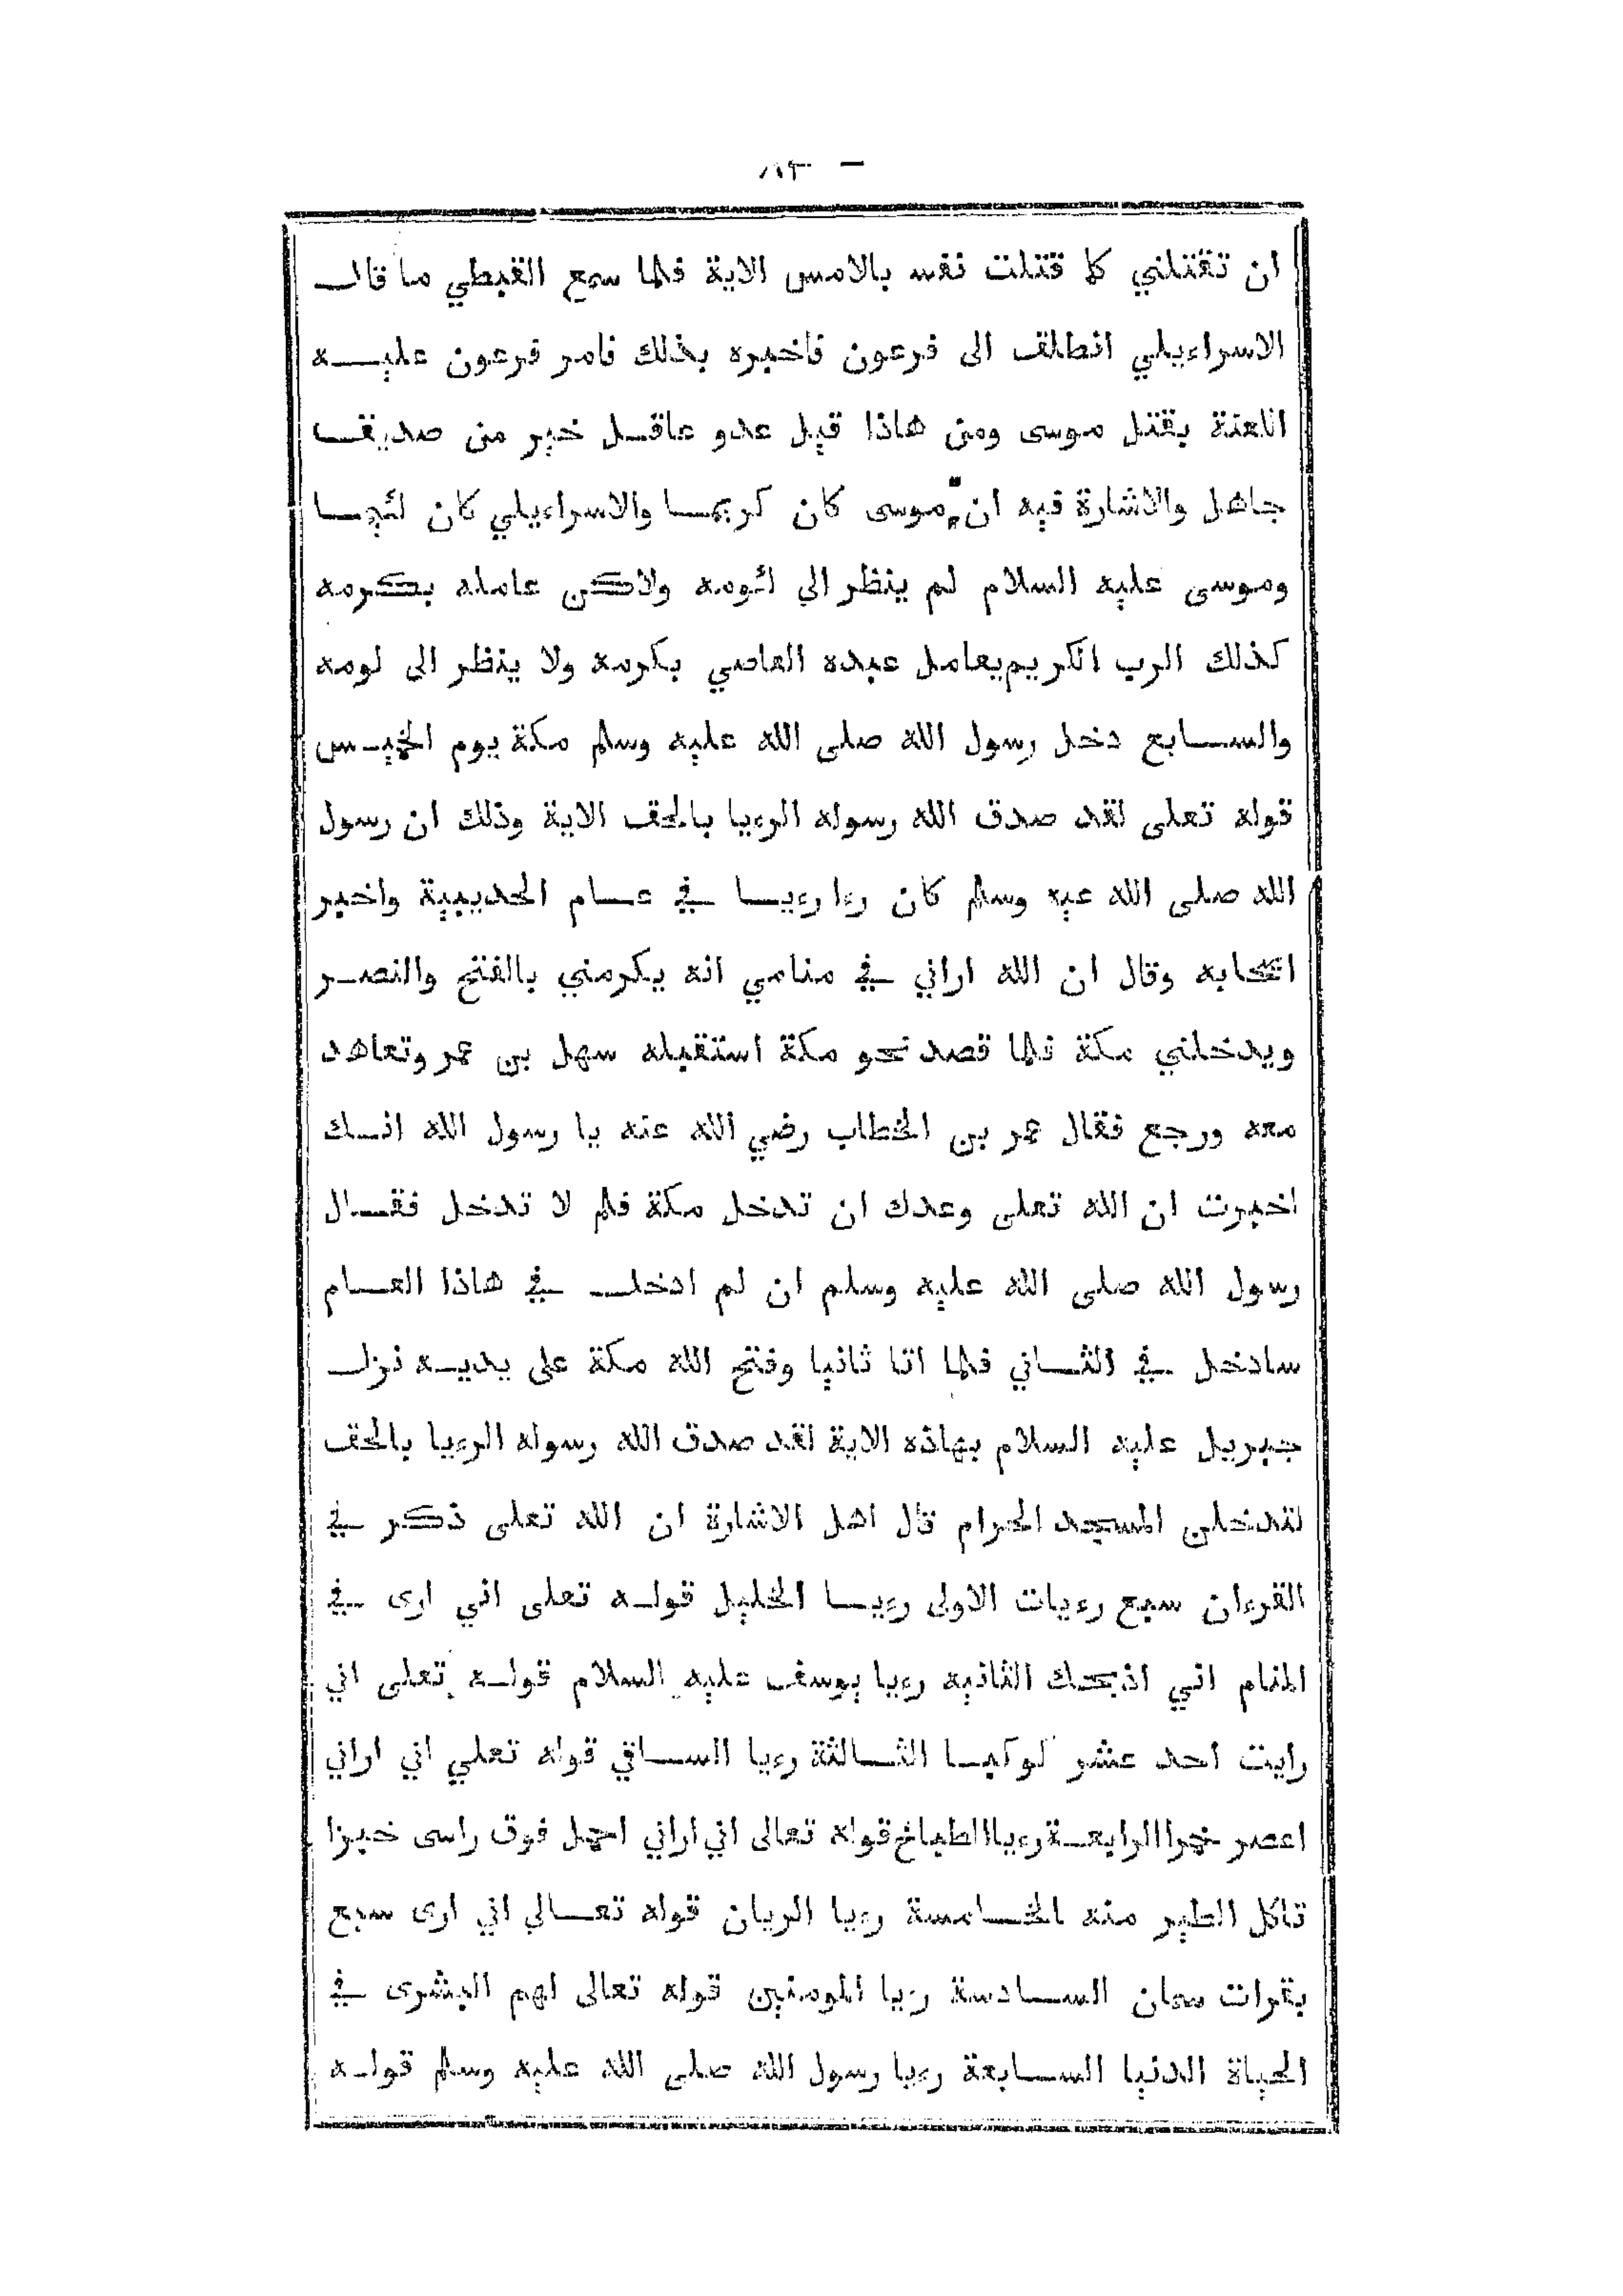 ان تقتلني كما قتلت نفسه بالامس الاية فلما سمع القبطي ما قال
الاسراءيلي انطلق الى فرعون فاخبره بذلك فامر فرعون عليه
اللعنة بقتل موسى ومن هاذا قيل عدو عاقل خير من صديق
جاهل والاشارة فيه ان موسى كان كريما والاسراءيلي كان لئيما
وموسى عليه السلام لم ينظر الي لئومه ولاكن عامله بكرمه
كذلك الرب الكريم يعامل عبده العاصي بكرمه ولا ينظر الى لومه
والسابع دخل رسول الله صلى الله عليه وسلم مكة يوم الخميس
قوله تعلى لقد صدق الله رسوله الرءيا بالحق الاية وذلك ان رسول
الله صلى الله عيه وسلم كان رءا رءيا في عام الحديبية واخبر
اصحابه وقال ان الله اراني في منامي انه يكرمني بالفتح والنصر
ويدخلني مكة فلما قصد نحو مكة استقبله سهل بن عمر وتعاهد
معه ورجع فقال عمر بن الخطاب رضي الله عنه يا رسول الله انك
اخبرت ان الله تعلى وعدك ان تدخل مكة فلم لا تدخل فقال
رسول الله صلى الله عليه وسلم ان لم ادخل في هاذا العام
سادخل في الثاني فلما اتا ثانيا وفتح الله مكة على يديه نزل
جبريل عليه السلام بهاذه الاية لقد صدق الله رسوله الرءيا بالحق
لتدخلن المسجد الحرام قال اهل الاشارة ان الله تعلى ذكر في
القرءان سبع رءيات الاولى رءيا الخليل قوله تعلى اني ارى في
المنام اني اذبحك الثانيه رءيا يوسف عليه السلام قوله تعلى اني
رايت احد عشر كوكبا الثالثة رءيا الساقي قوله تعلي اني اراني
اعصر خمرا الرابعة رءيا الطباخ قوله تعالى اني اراني احمل فوق راسى خبزا
تاكل الطير منه الخامسة رءيا الريان قوله تعالي اني ارى سبع
بقرات سمان السادسة رءيا المومنين قوله تعالى لهم البشرى في
الحياة الدنيا السابعة رءيا رسول الله صلى الله عليه وسلم قوله